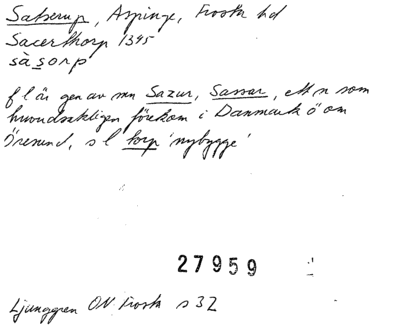 Satserup, Äspinge, Frosta hd
Sacerthorp 1345
sàsorp
f l är gen av mn Sazur, Sassar, ett n som
huvudsakligen förekom i Danmark ö om
Öresund, s l torp 'nybygge'
27959
Ljunggren ON Frosta s 32